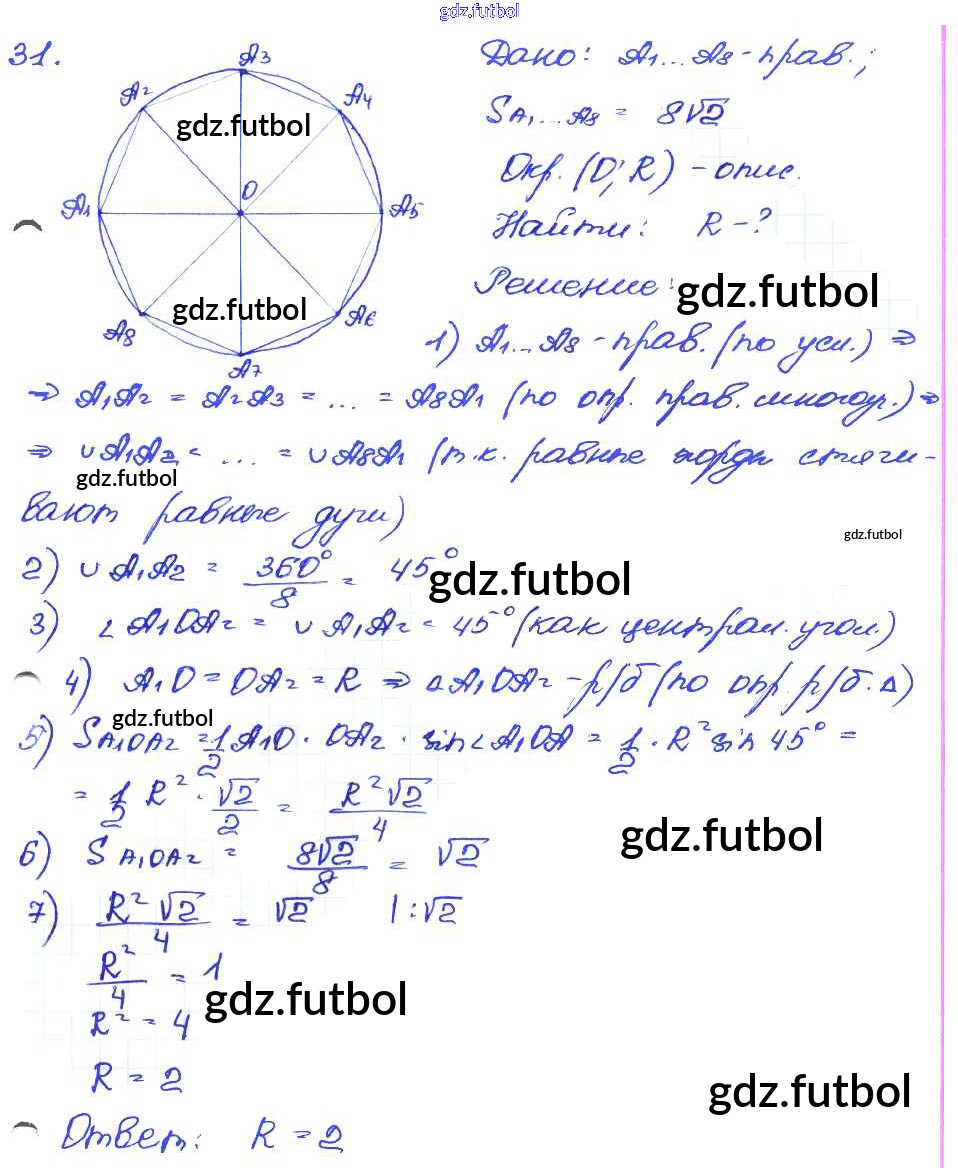 gdz.futbol
31.
A3
A2
A4
gdz.futbol
O
A1
A5
gdz.futbol
A8
A6
A7
Дано: A₁...A₈ - прав.;
S A₁...A₈ = 8√2
Окр. (O; R) - опис.
Найти: R - ?
Решение:
gdz.futbol
1) A₁...A₈ - прав. (по усл.) ⇒
⇒ A₁A₂ = A₂A₃ = ... = A₈A₁ (по опр. прав. многоуг.) ⇒
⇒ ∪A₁A₂ = ... = ∪A₈A₁ (т.к. равные хорды стяги-
gdz.futbol
вают равные дуги)
gdz.futbol
2) ∪A₁A₂ = 360°/8 = 45°
gdz.futbol
3) ∠A₁OA₂ = ∪A₁A₂ = 45° (как централ. угол.)
4) A₁O = OA₂ = R ⇒ △A₁OA₂ - р/б (по опр. р/б. △)
gdz.futbol
5) S A₁OA₂ = 1/2 A₁O · OA₂ · sin∠A₁OA = 1/2 · R² sin 45° =
= 1/2 R² · √2/2 = R²√2/4
gdz.futbol
6) S A₁OA₂ = 8√2/8 = √2
7) R²√2/4 = √2 | : √2
R²/4 = 1
gdz.futbol
R² = 4
R = 2
gdz.futbol
Ответ: R = 2